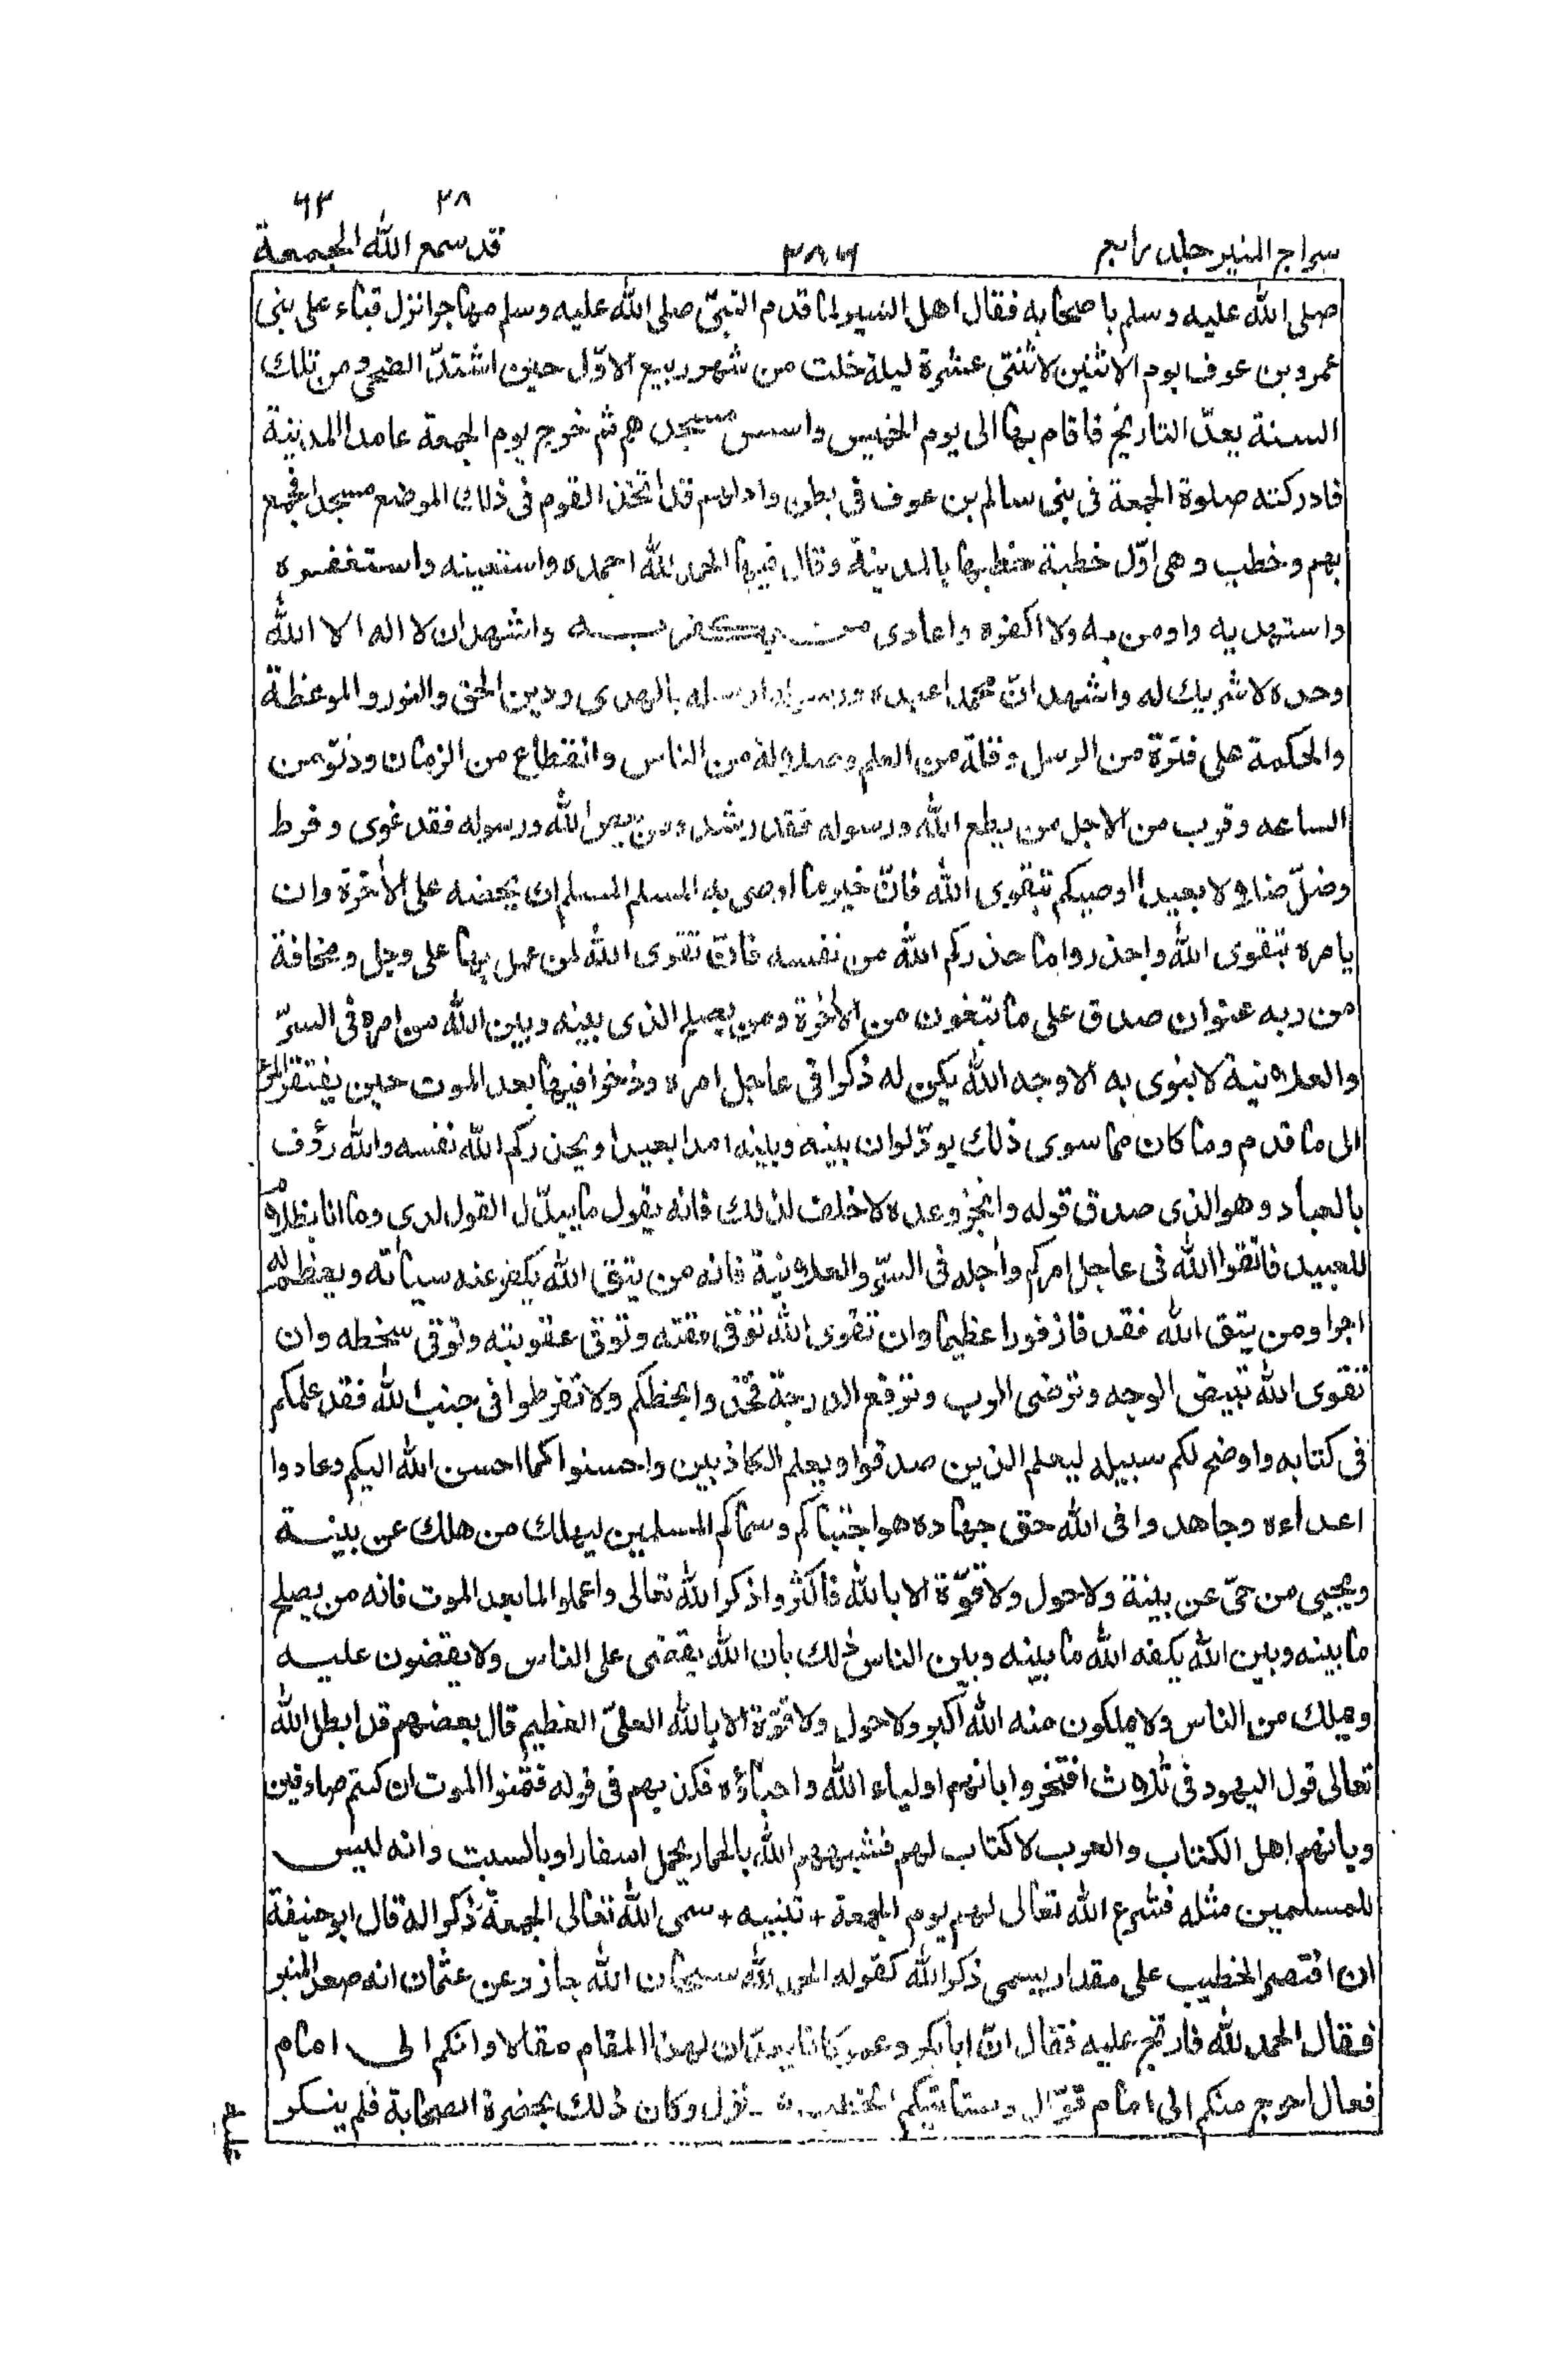 ۲۸ ۶۲
سراج المنیر جلد رابع ۲۸۶ قد سمع الله الجمعة
صلى الله عليه وسلم باصحابه فقال اهل السير لما قدم النبىّ صلى الله عليه وسلم مهاجرا نزل قباء على بنى
عمرو بن عوف يوم الاثنين لاثنتى عشرة ليلة خلت من شهر ربيع الاوّل حين اشتدّ الضحى ومن تلك
السنة يعدّ التاريخ فاقام بها الى يوم الخميس واسس مسجدهم ثم خرج يوم الجمعة عامدا المدينة
فادركته صلوة الجمعة فى بنى سالم بن عوف فى بطن واد لهم قد اتخذ القوم فى ذلك الموضع مسجدا فجمع
بهم وخطب وهى اوّل خطبة خطبها بالمدينة وقال فيها الحمد لله احمده واستعينه واستغفره
واستهديه واومن به ولا اكفره واعادى من يكفر به واشهد ان لا اله الا الله
وحده لا شريك له واشهد انّ محمدا عبده ورسوله ارسله بالهدى ودين الحق والنور والموعظة
والحكمة على فترة من الرسل وقلة من العلم وضلالة من الناس وانقطاع من الزمان ودنوّ من
الساعه وقرب من الاجل من يطع الله ورسوله فقد رشد ومن يعص الله ورسوله فقد غوى وفرط
وضلّ ضلالا بعيدا اوصيكم بتقوى الله فانّ خير ما اوصى به المسلم المسلم ان يحضه على الأخرة وان
يامره بتقوى الله واحذروا ما حذركم الله من نفسه فانّ تقوى الله لمن عمل بها على وجل ومخافة
من ربه عنوان صدق على ما تبغون من الأخرة ومن يصلح الذى بينه وبين الله من امره فى السرّ
والعلانية لا ينوى به الا وجه الله يكن له ذكرا فى عاجل امره وذخرا فيما بعد الموت حين يفتقر المرء
الى ما قدم وما كان مما سوى ذلك يودّ لو ان بينه وبينه امدا بعيدا ويحذركم الله نفسه والله رؤف
بالعباد وهو الذى صدق قوله وانجز وعده لا خلف لذلك فانه يقول ما يبدّل القول لدى وما انا بظلام
للعبيد فاتقوا الله فى عاجل امركم وأجله فى السرّ والعلانية فانه من يتق الله يكفر عنه سيأته ويعظم له
اجرا ومن يتق الله فقد فاز فوزا عظيما وان تقوى الله توقى مقته وتوقى عقوبته وتوقى سخطه وان
تقوى الله تبيض الوجه وترضى الرب وترفع الدرجة فخذوا بحظكم ولا تفرطوا فى جنب الله فقد علمكم
فى كتابه واوضح لكم سبيله ليعلم الذين صدقوا ويعلم الكاذبين واحسنوا كما احسن الله اليكم وعادوا
اعداءه وجاهدوا فى الله حق جهاده هو اجتباكم وسماكم المسلمين ليهلك من هلك عن بينة
ويحيى من حىّ عن بينة ولا حول ولا قوّة الا بالله فاكثروا ذكر الله تعالى واعملوا لما بعد الموت فانه من يصلح
ما بينه وبين الله يكفه الله ما بينه وبين الناس ذلك بان الله يقضى على الناس ولا يقضون عليه
ويملك من الناس ولا يملكون منه الله اكبر ولا حول ولا قوّة الا بالله العلىّ العظيم قال بعضهم قد ابطل الله
تعالى قول اليهود فى ثلاث افتخروا بانهم اولياء الله واحباؤه فكذبهم فى قوله فتمنوا الموت ان كنتم صادقين
وبانهم اهل الكتاب والعرب لا كتاب لهم فشبههم الله بالحمار يحمل اسفارا وبالسبت وانه ليس
للمسلمين مثله فشرع الله تعالى لهم يوم الجمعة + تنبيه + سمى الله تعالى الجمعة ذكرا له قال ابو حنيفة
ان اقتصر الخطيب على مقدار يسمى ذكر الله كقوله الحمد لله سبحان الله جاز وعن عثمان انه صعد المنبر
فقال الحمد لله فارتج عليه فقال انّ ابا بكر وعمر كانا يعدّان لهذا المقام مقالا وانكم الى امام
فعال احوج منكم الى امام قوّال وستاتيكم الخطب نزل وكان ذلك بحضرة الصحابة فلم ينكر